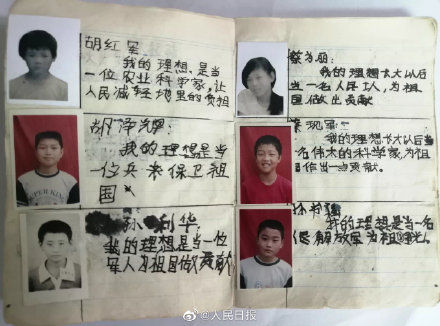 胡红军
我的理想是当
一位农业科学家,让
人民减轻地里的负担
胡泽光:
我的理想是当
一位兵来保卫祖
国
孙利华
我的理想是当一位
军人为祖国做贡献
为丽:
我的理想长大以后
当一名人民工人,为祖
国做出贡献
我的理想长大以后当
名伟大的科学家,为祖国
作出一点贡献.
我的理想是当一名
解放军为祖国争光.
@人民日报